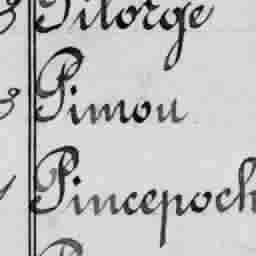 Pilorge
Pimou
Pincepoch